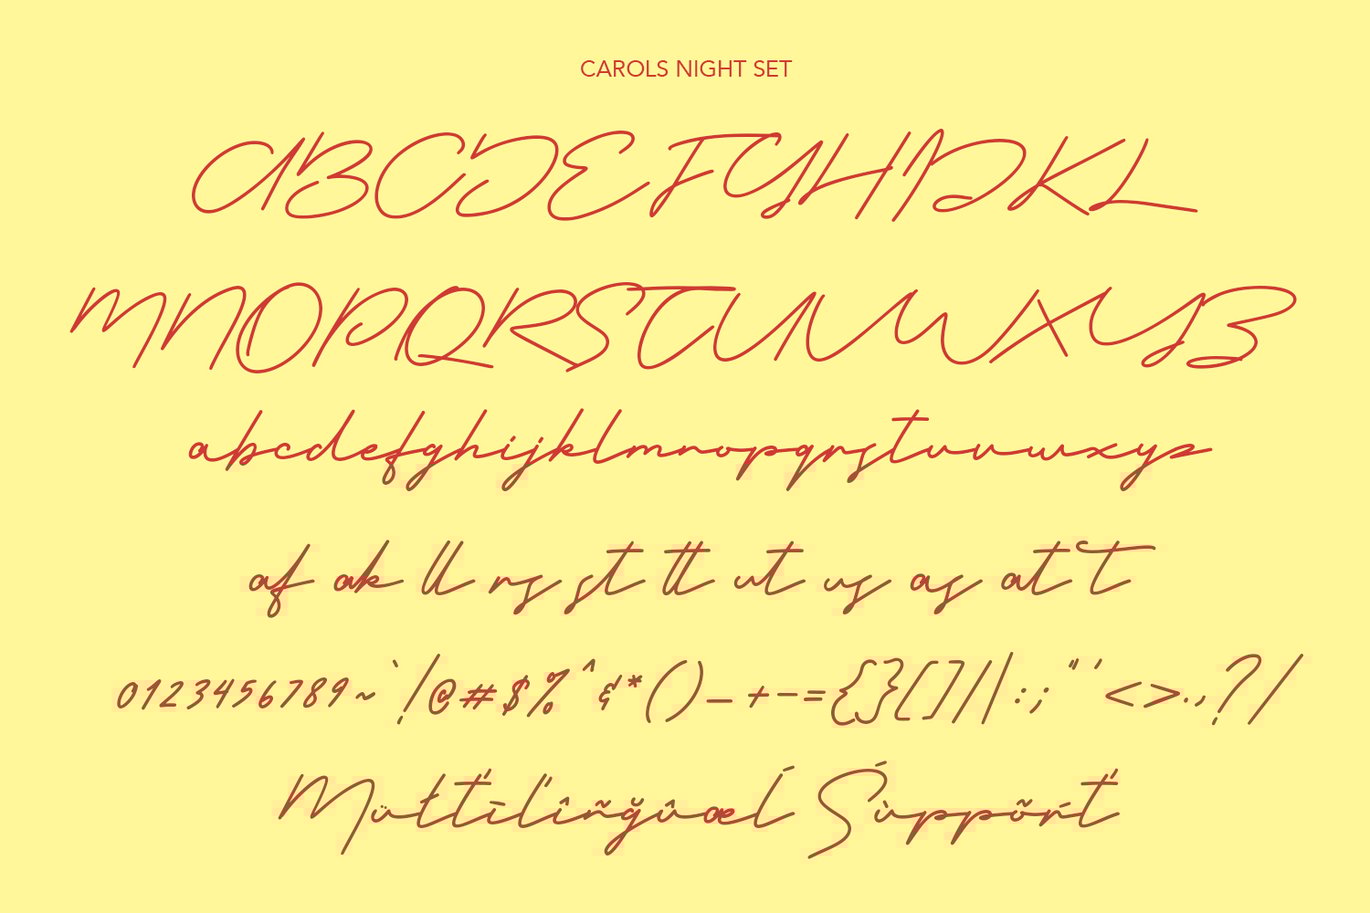 CAROLS NIGHT SET
ABCDEFGHIJKL
MNOPQRSTUVWXYZ
abcdefghijklmnopqrstuvwxyz
af ak ll rs st tt ut us as at t
0123456789~`!@#$%^&*()_+-={}[]/|:;"'<>.,?/
Müłťīľîñğûæĺ Śùppõŕť